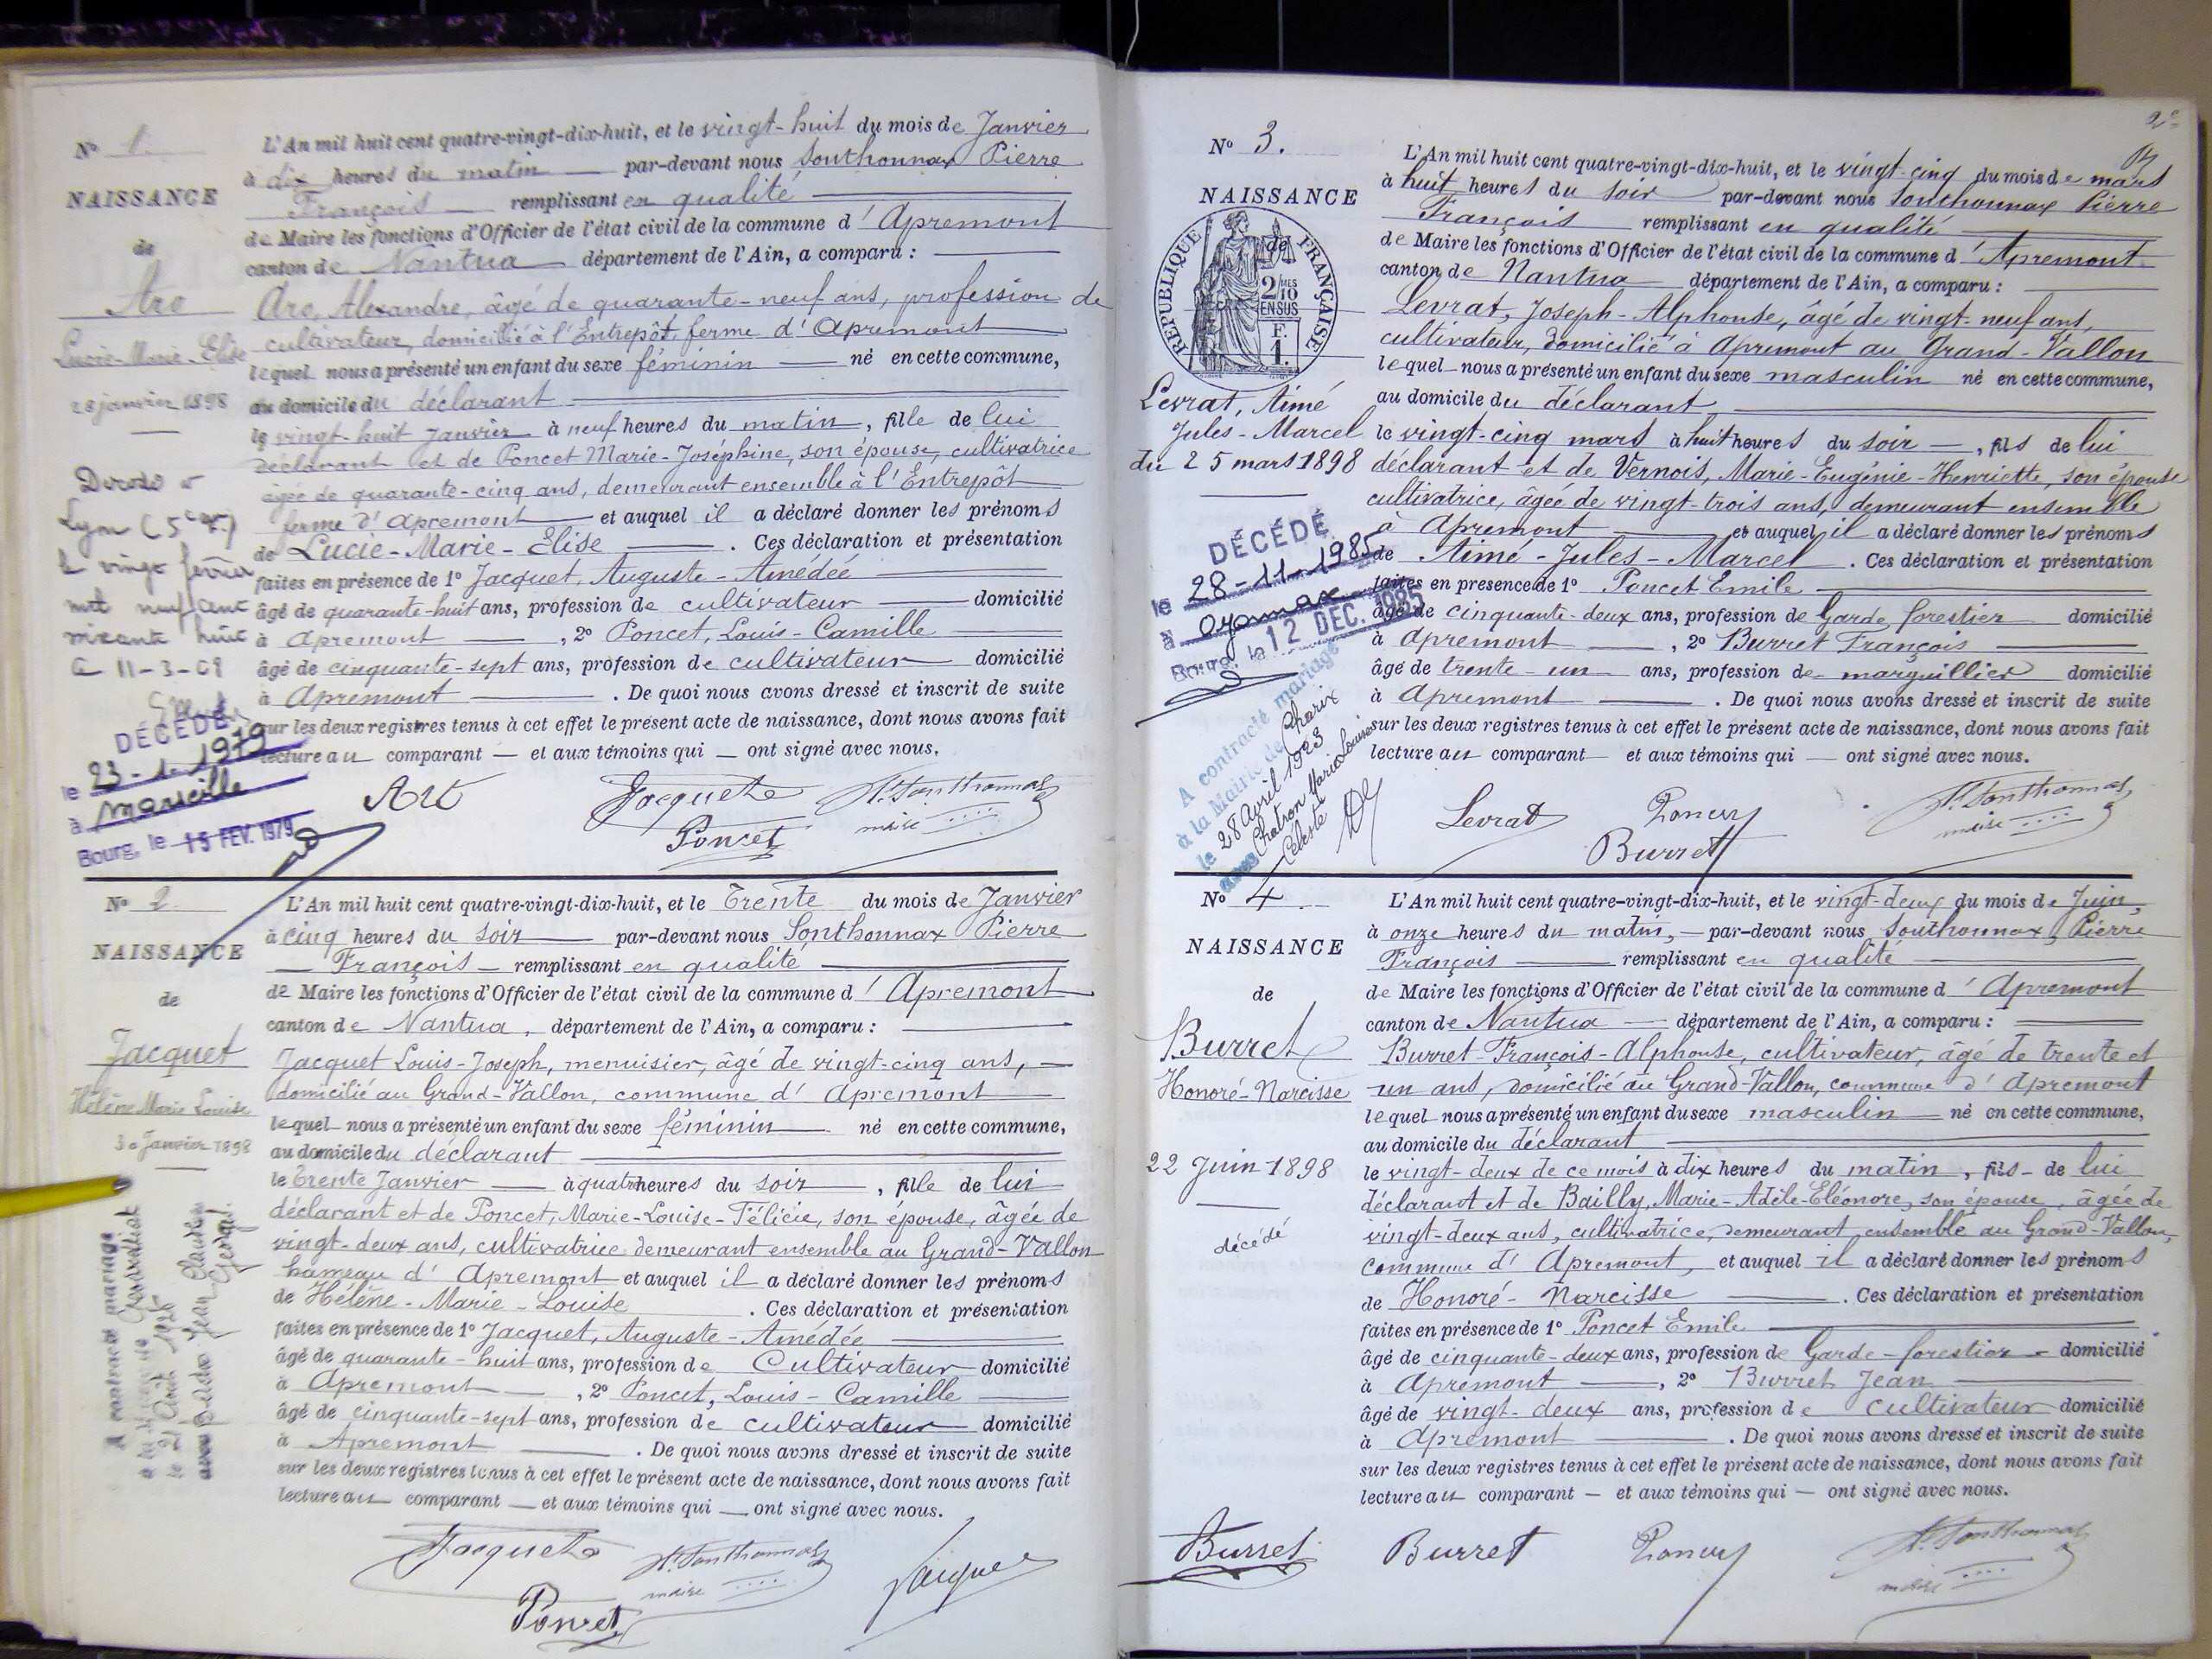 N° 1.
NAISSANCE
de
Aro
Lucie-Marie-Elise
28 janvier 1898
Lyon (5
le vingt février
mil neuf cent
soixante huit
11-3-
DÉCÉDÉ
le 23-1-1979
à Marseille
Bourg, le 15 FEV. 1979
L'An mil huit cent quatre-vingt-dix-huit, et le vingt-huit du mois de Janvier
à dix heures du matin par-devant nous Sonthonnax Pierre
François remplissant en qualité
de Maire les fonctions d'Officier de l'état civil de la commune d'Apremont
canton de Nantua département de l'Ain, a comparu :
Aro, Alexandre, âgé de quarante-neuf ans, profession de
cultivateur, domicilié à l'Entrepôt, ferme d'Apremont
lequel nous a présenté un enfant du sexe féminin né en cette commune,
au domicile du déclarant
le vingt-huit janvier à neuf heures du matin, fille de lui
déclarant et de Poncet Marie-Joséphine, son épouse, cultivatrice
âgée de quarante-cinq ans, demeurant ensemble à l'Entrepôt
ferme d'Apremont et auquel il a déclaré donner les prénoms
de Lucie-Marie-Elise. Ces déclaration et présentation
faites en présence de 1° Jacquet, Auguste-Amédée
âgé de quarante-huit ans, profession de cultivateur domicilié
à Apremont, 2° Poncet, Louis-Camille
âgé de cinquante-sept ans, profession de cultivateur domicilié
à Apremont. De quoi nous avons dressé et inscrit de suite
sur les deux registres tenus à cet effet le présent acte de naissance, dont nous avons fait
lecture au comparant — et aux témoins qui — ont signé avec nous.
Jacquet
Poncet
Sonthonnax
maire
N° 2.
NAISSANCE
de
Jacquet
Hélène Marie Louise
30 Janvier 1898
A contracté mariage
L'An mil huit cent quatre-vingt-dix-huit, et le Trente du mois de Janvier
à cinq heures du soir par-devant nous Sonthonnax Pierre
François remplissant en qualité
de Maire les fonctions d'Officier de l'état civil de la commune d'Apremont
canton de Nantua, département de l'Ain, a comparu :
Jacquet Louis-Joseph, menuisier, âgé de vingt-cinq ans,
domicilié au Grand-Vallon, commune d'Apremont
lequel nous a présenté un enfant du sexe féminin né en cette commune,
au domicile du déclarant
le trente Janvier à quatre heures du soir, fille de lui
déclarant et de Poncet, Marie-Louise-Félicie, son épouse, âgée de
vingt-deux ans, cultivatrice demeurant ensemble au Grand-Vallon
hameau d'Apremont et auquel il a déclaré donner les prénoms
de Hélène-Marie-Louise. Ces déclaration et présentation
faites en présence de 1° Jacquet, Auguste-Amédée
âgé de quarante-huit ans, profession de Cultivateur domicilié
à Apremont, 2° Poncet, Louis-Camille
âgé de cinquante-sept ans, profession de cultivateur domicilié
à Apremont. De quoi nous avons dressé et inscrit de suite
sur les deux registres tenus à cet effet le présent acte de naissance, dont nous avons fait
lecture au comparant — et aux témoins qui — ont signé avec nous.
Jacquet
Sonthonnax
maire
Poncet
N° 3.
NAISSANCE
de
RÉPUBLIQUE FRANÇAISE
2/10 MES
EN SUS
F.
1.
Levrat, Aimé
Jules-Marcel
du 25 mars 1898
DÉCÉDÉ
le 28-11-1985
à Oyonnax
Bourg, le 12 DEC. 1985
A contracté mariage
à la Mairie de Charix
le 28 Avril 1923
avec Chatron Maria Louise
Céleste
L'An mil huit cent quatre-vingt-dix-huit, et le vingt-cinq du mois de mars
à huit heures du soir par-devant nous Sonthonnax Pierre
François remplissant en qualité
de Maire les fonctions d'Officier de l'état civil de la commune d'Apremont
canton de Nantua département de l'Ain, a comparu :
Levrat, Joseph-Alphonse, âgé de vingt-neuf ans,
cultivateur, domicilié à Apremont au Grand-Vallon
lequel nous a présenté un enfant du sexe masculin né en cette commune,
au domicile du déclarant
le vingt-cinq mars à huit heures du soir —, fils de lui
déclarant et de Vernois, Marie-Eugénie-Henriette, son épouse
cultivatrice, âgée de vingt-trois ans, demeurant ensemble
à Apremont et auquel il a déclaré donner les prénoms
de Aimé-Jules-Marcel. Ces déclaration et présentation
faites en présence de 1° Poncet Emile
âgé de cinquante-deux ans, profession de Garde forestier domicilié
à Apremont, 2° Burret François
âgé de trente-un ans, profession de marguillier domicilié
à Apremont. De quoi nous avons dressé et inscrit de suite
sur les deux registres tenus à cet effet le présent acte de naissance, dont nous avons fait
lecture au comparant — et aux témoins qui — ont signé avec nous.
Levrat
Poncet
Burret
Sonthonnax
maire
N° 4
NAISSANCE
de
Burret
Honoré-Narcisse
22 Juin 1898
décédé
L'An mil huit cent quatre-vingt-dix-huit, et le vingt-deux du mois de Juin,
à onze heures du matin, — par-devant nous Sonthonnax, Pierre
François remplissant en qualité
de Maire les fonctions d'Officier de l'état civil de la commune d'Apremont
canton de Nantua — département de l'Ain, a comparu :
Burret François-Alphonse, cultivateur, âgé de trente et
un ans, domicilié au Grand-Vallon, commune d'Apremont
lequel nous a présenté un enfant du sexe masculin né en cette commune,
au domicile du déclarant
le vingt-deux de ce mois à dix heures du matin, fils de lui
déclarant et de Bailly, Marie-Adèle-Eléonore, son épouse, âgée de
vingt-deux ans, cultivatrice, demeurant ensemble au Grand-Vallon,
commune d'Apremont, et auquel il a déclaré donner les prénoms
de Honoré-Narcisse. Ces déclaration et présentation
faites en présence de 1° Poncet Emile
âgé de cinquante-deux ans, profession de Garde-forestier domicilié
à Apremont, 2° Burret Jean
âgé de vingt-deux ans, profession de cultivateur domicilié
à Apremont. De quoi nous avons dressé et inscrit de suite
sur les deux registres tenus à cet effet le présent acte de naissance, dont nous avons fait
lecture au comparant — et aux témoins qui — ont signé avec nous.
Burret
Burret
Poncet
Sonthonnax
maire